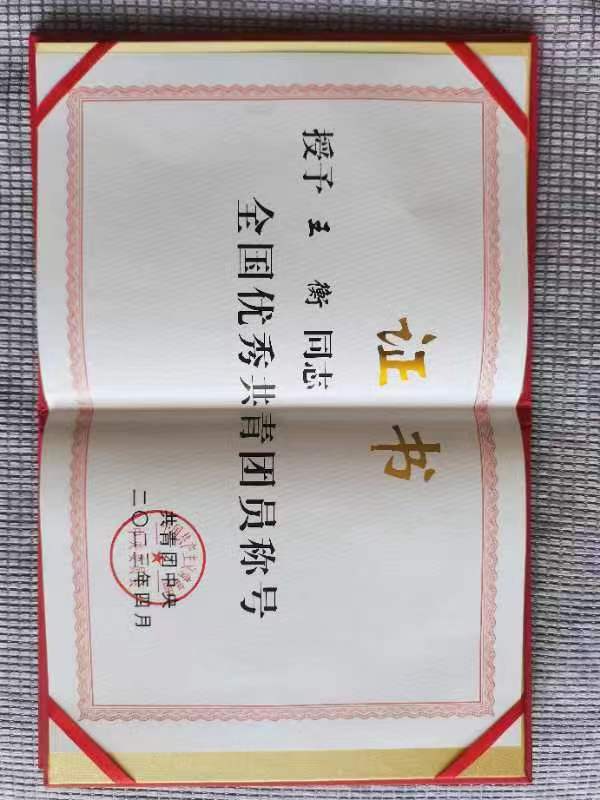 证书
授予王衡同志
全国优秀共青团员称号
共青团中央
二〇二三年四月